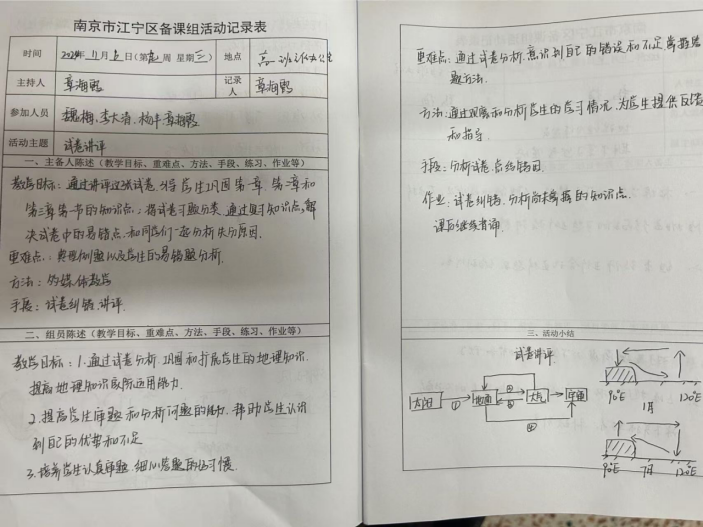 南京市江宁区备课组活动记录表
时间 2024年11月6日(第 周 星期三) 地点 高一 办公室
主持人 章海霞 记录人 章海霞
参加人员 魏梅、李大清、杨华、章海霞
活动主题 试卷讲评
一、主备人陈述(教学目标、重难点、方法、手段、练习、作业等)
教学目标:通过讲评这张试卷,引导学生巩固第一章、第二章和
第三章第一节的知识点;将试卷习题分类,通过复习知识点,解
决试卷中的易错点,和同学们一起分析失分原因.
重难点:典型例题以及学生的易错题分析.
方法:多媒体教学
手段:试卷纠错、讲评.
二、组员陈述(教学目标、重难点、方法、手段、练习、作业等)
教学目标:1.通过试卷分析,巩固和扩展学生的地理知识.
提高地理知识的运用能力.
2.提高学生审题和分析问题的能力,帮助学生认识
到自己的优势和不足
3.培养学生认真审题,细心答题的好习惯.
重难点:通过试卷分析,意识到自己的错误和不足,掌握答
题方法.
方法:通过观察和分析学生的学习情况,为学生提供反馈
和指导.
手段:分析试卷,总结错因.
作业:试卷纠错,分析尚未掌握的知识点.
课后继续背诵.
三、活动小结
试卷讲评
太阳 ① 地面 ② ③ 大气 ④
90°E 1月 120°E
90°E 7月 120°E